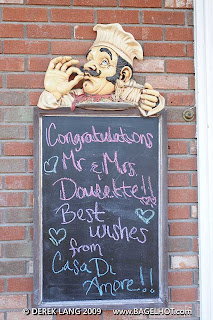 Congratulations
Mr & Mrs.
Doudette!!!
Best
wishes
from
CaSa Di
Amore!!
© DEREK LANG 2009 www.BAGELHOT.com